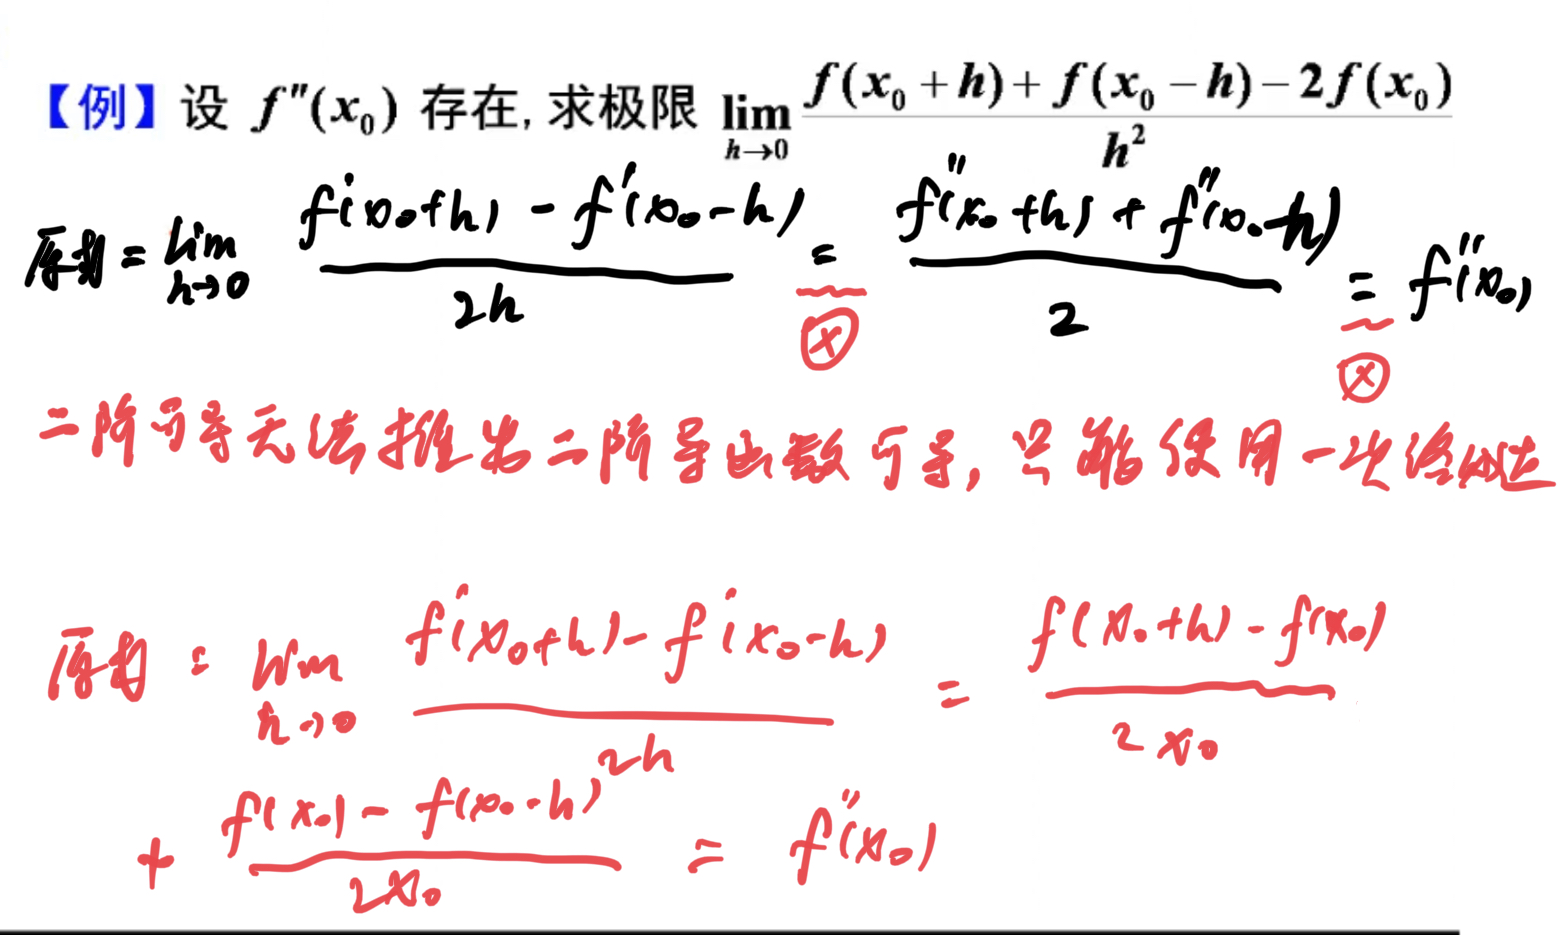 【例】设 f″(x₀) 存在, 求极限 lim_{h→0} (f(x₀+h)+f(x₀−h)−2f(x₀))/h²
原式 = lim_{h→0} (f′(x₀+h) − f′(x₀−h))/(2h) = (f″(x₀+h) + f″(x₀−h))/2 = f″(x₀)
ⓧ ⓧ
二阶可导无法推出二阶导函数可导, 只能使用一次洛必达
原式 = lim_{h→0} (f′(x₀+h) − f′(x₀−h))/(2h) = (f(x₀+h) − f(x₀))/(2x₀)
+ (f(x₀) − f(x₀−h))/(2x₀) = f″(x₀)